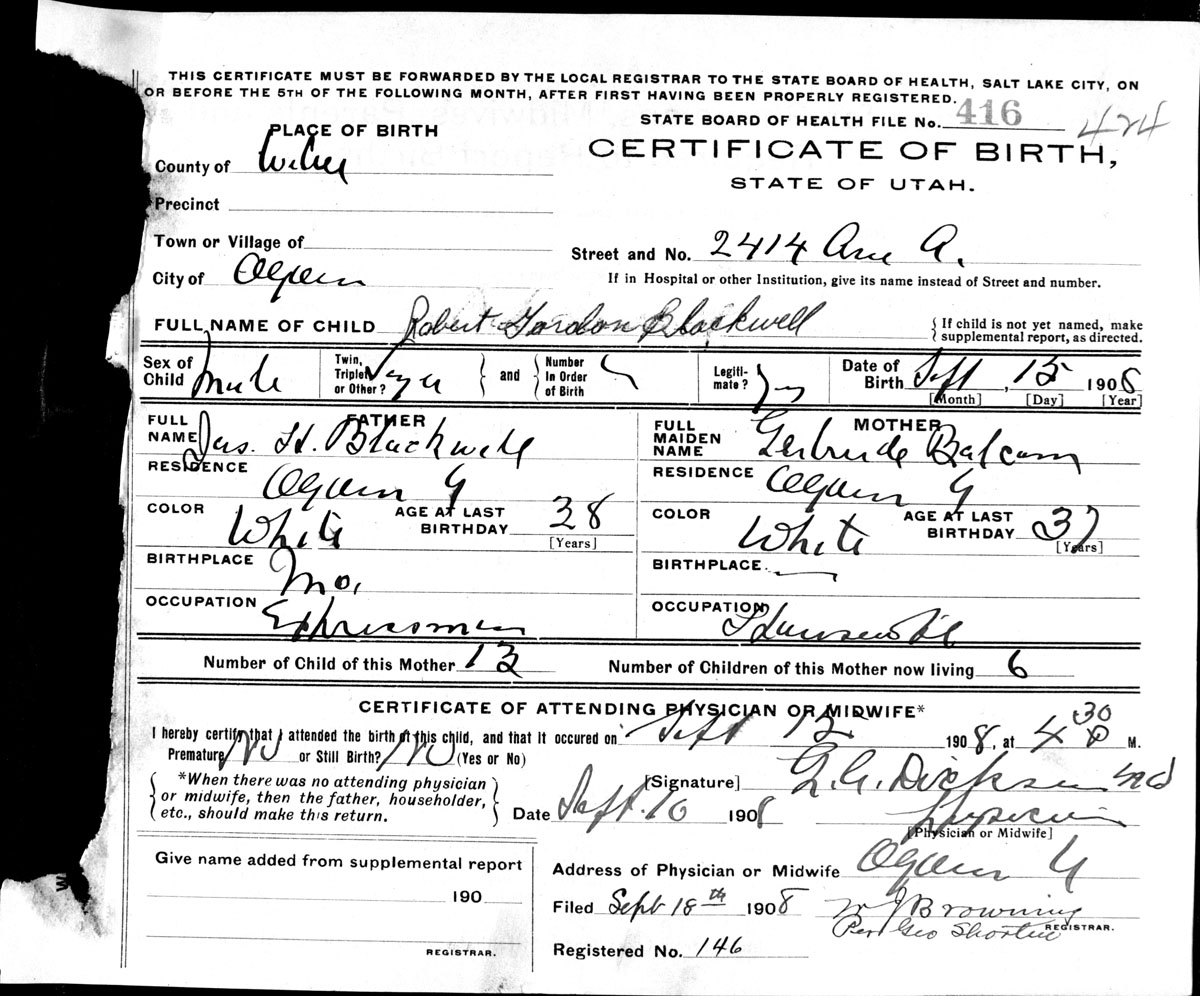 THIS CERTIFICATE MUST BE FORWARDED BY THE LOCAL REGISTRAR TO THE STATE BOARD OF HEALTH, SALT LAKE CITY, ON
OR BEFORE THE 5TH OF THE FOLLOWING MONTH, AFTER FIRST HAVING BEEN PROPERLY REGISTERED.
STATE BOARD OF HEALTH FILE No. 416 424
PLACE OF BIRTH
CERTIFICATE OF BIRTH,
STATE OF UTAH.
County of Weber
Precinct
Town or Village of
Street and No. 2414 Ave A.
City of Ogden
If in Hospital or other Institution, give its name instead of Street and number.
FULL NAME OF CHILD Robert Gordon Blackwell
{ If child is not yet named, make
supplemental report, as directed.
Sex of Child Male
Twin, Triplet or Other?
and
Number In Order of Birth
Legiti-mate?
Date of Birth Sept, 15 1908
[Month] [Day] [Year]
FATHER
FULL NAME Jas. H. Blackwell
MOTHER
FULL MAIDEN NAME Gertrude Balcom
RESIDENCE Ogden U
RESIDENCE Ogden U
COLOR White
AGE AT LAST BIRTHDAY 38
[Years]
COLOR White
AGE AT LAST BIRTHDAY 37
[Years]
BIRTHPLACE Mo.
BIRTHPLACE.
OCCUPATION Expressman
OCCUPATION Housewife
Number of Child of this Mother 13
Number of Children of this Mother now living 6
CERTIFICATE OF ATTENDING PHYSICIAN OR MIDWIFE*
I hereby certify that I attended the birth of this child, and that it occured on Sept 15 1908, at 4 30 P M.
Premature No or Still Birth? No (Yes or No)
*When there was no attending physician
or midwife, then the father, householder,
etc., should make this return.
[Signature] Dickson MD
Date Sept. 1908
Physician
[Physician or Midwife]
Give name added from supplemental report
190
REGISTRAR.
Address of Physician or Midwife Ogden U
Filed Sept 18th 1908
W J Browning
REGISTRAR.
Per Geo Shorten
Registered No. 146